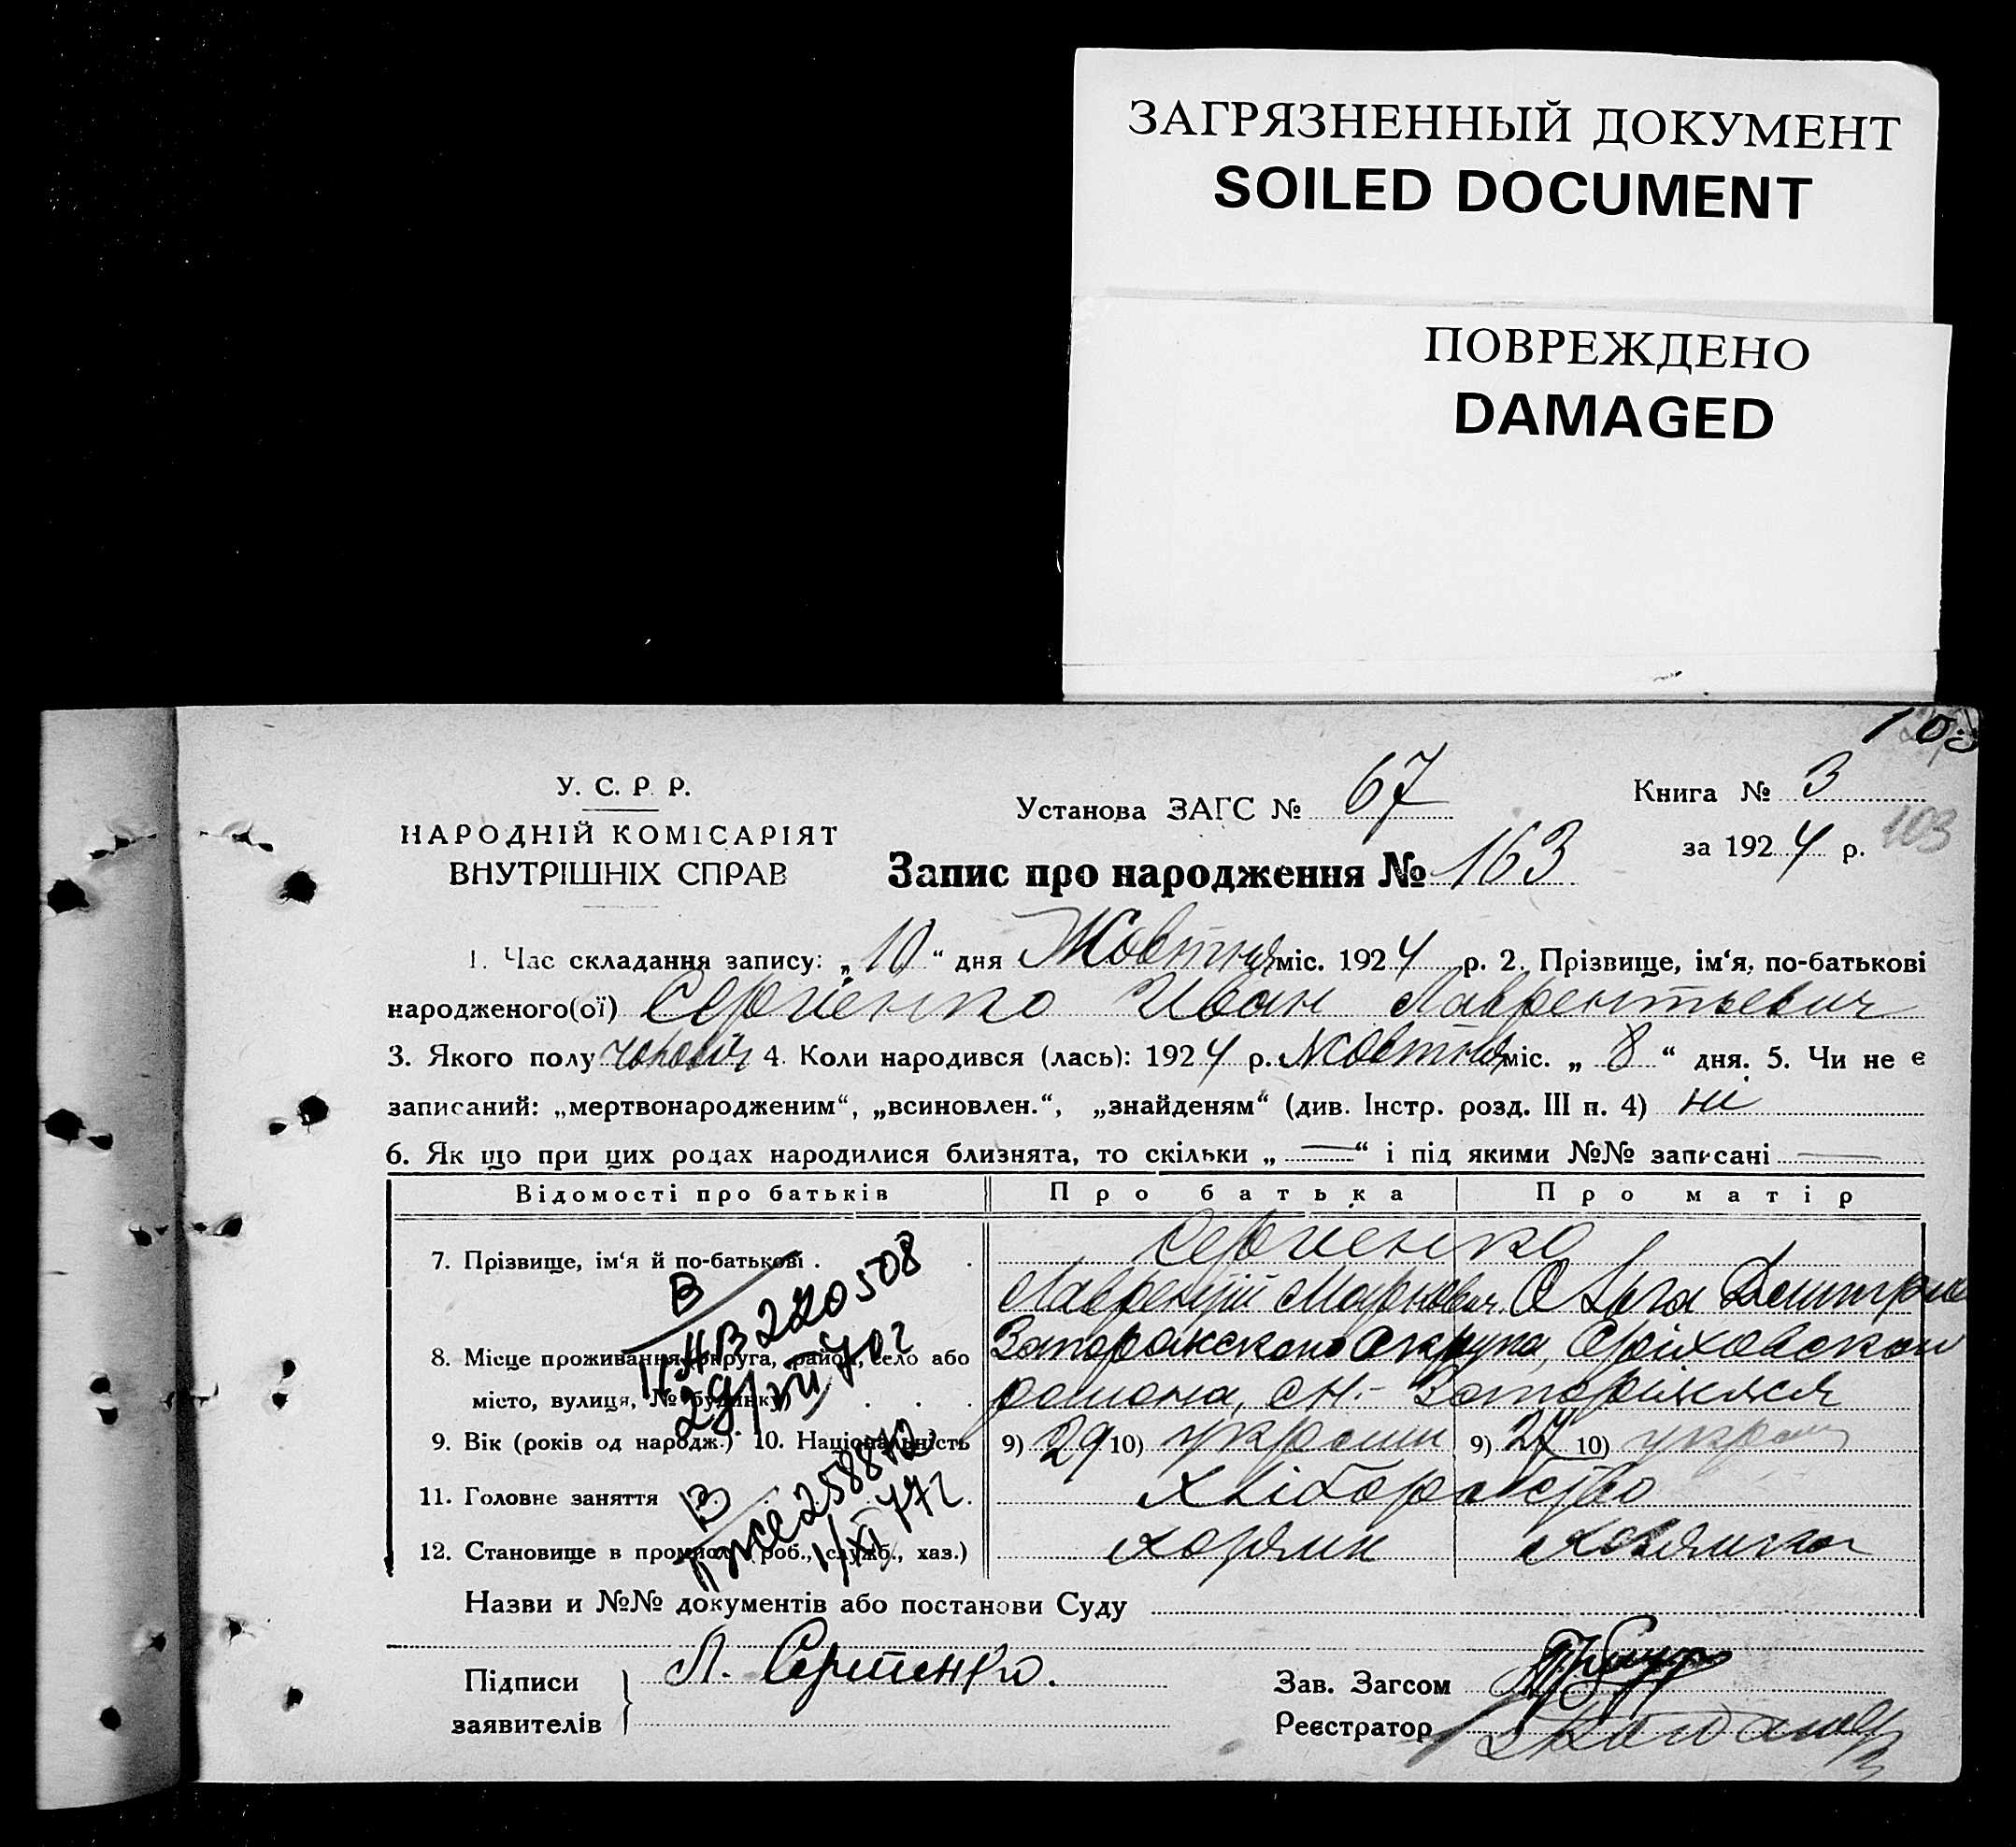 ЗАГРЯЗНЕННЫЙ ДОКУМЕНТ
SOILED DOCUMENT
ПОВРЕЖДЕНО
DAMAGED
103
У. С. Р. Р.
НАРОДНІЙ КОМІСАРІЯТ
ВНУТРІШНІХ СПРАВ
Установа ЗАГС № 67
Книга № 3
за 1924 р. 103
Запис про народження № 163
1. Час складання запису: „10“ дня Жовтня міс. 1924 р. 2. Прізвище, ім‘я, по-батькові
народженого(ої) Сергиенко Иван Лаврентьевич
3. Якого полу чоловіч 4. Коли народився (лась): 1924 р. Жовтня міс. „8“ дня. 5. Чи не є
записаний: „мертвонародженим“, „всиновлен.“, „знайденям“ (див. Інстр. розд. III п. 4) ні
6. Як що при цих родах народилися близнята, то скільки „ — “ і під якими №№ записані —
Відомості про батьків Про батька Про матір
7. Прізвище, ім‘я й по-батькові . . Сергиенко
Лаврентій Маркович Ольга Дмитров
8. Місце проживання (округа, район, село або Запоражского Округа, Оріховского
місто, вулиця, № будинку) . . . района, с.
9. Вік (років од народж.) 10. Національність 9) 29 10) украин 9) 27 10) украин
11. Головне заняття . . . Хліборобство
12. Становище в промислі (роб., служб., хаз.) хозяин Хозяйка
В
II АВ 220508
29/XII 70г
В
II ЖС 258872
1/XI 77г.
Назви и №№ документів або постанови Суду
Підписи
заявителів
Л. Сергиенко.
Зав. Загсом
Реєстратор